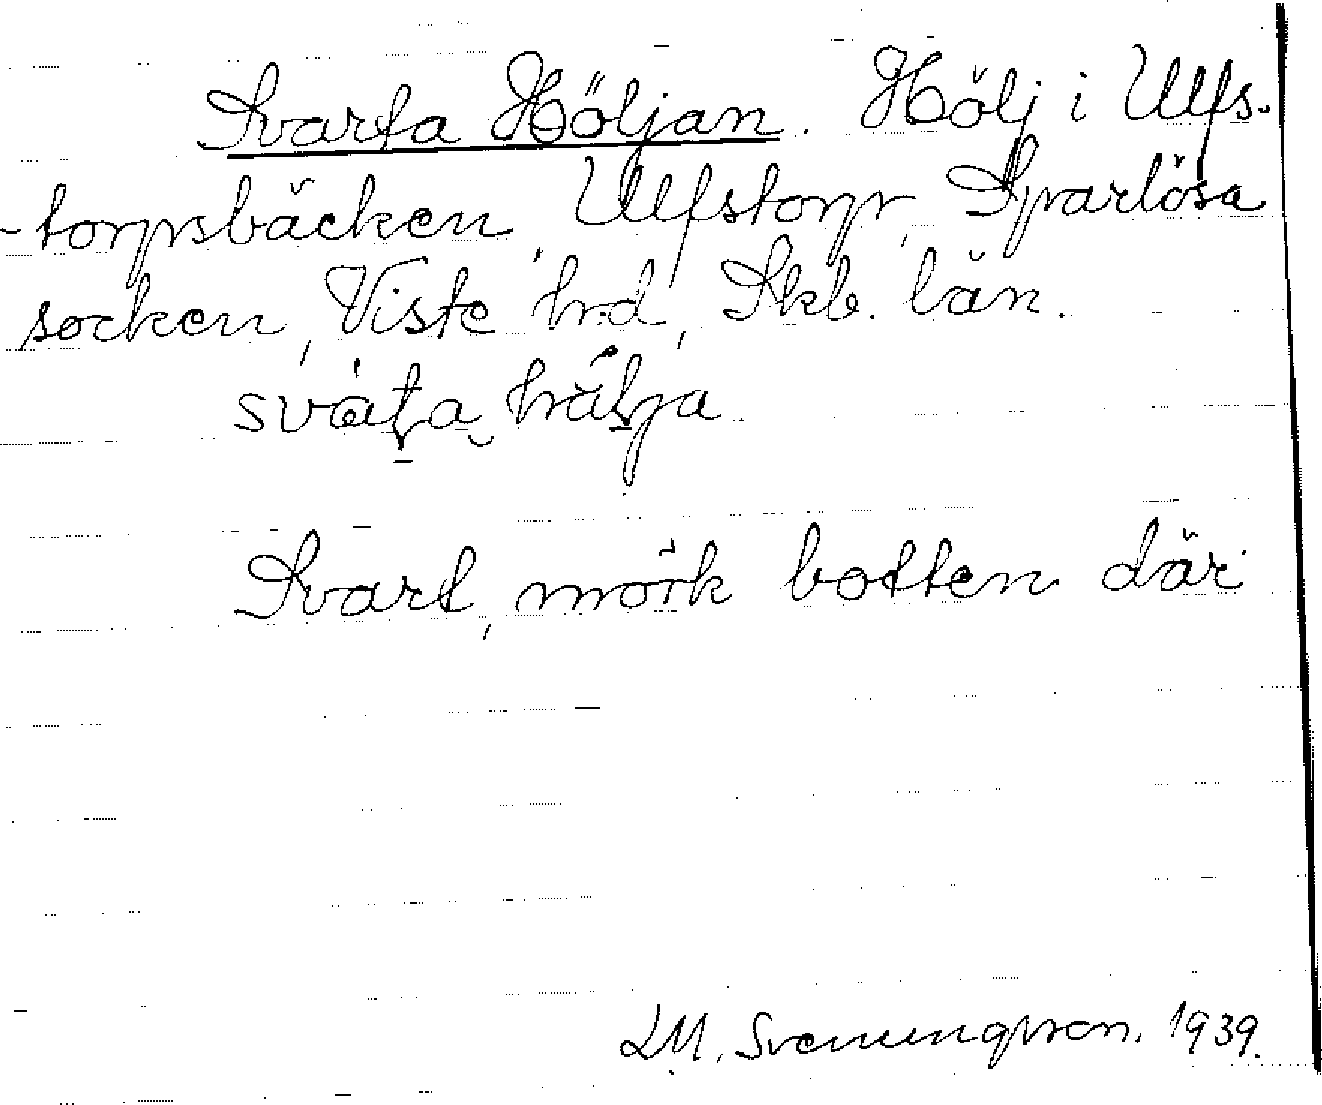 Svarta Höljan. Hölj i Ulfs-
-torpsbäcken, Ulfstorp, Sparlösa
socken, Viste hrd, Skb. län.
svat̠a hälja
Svart, mörk botten där
LM. Svenungsson. 1939.